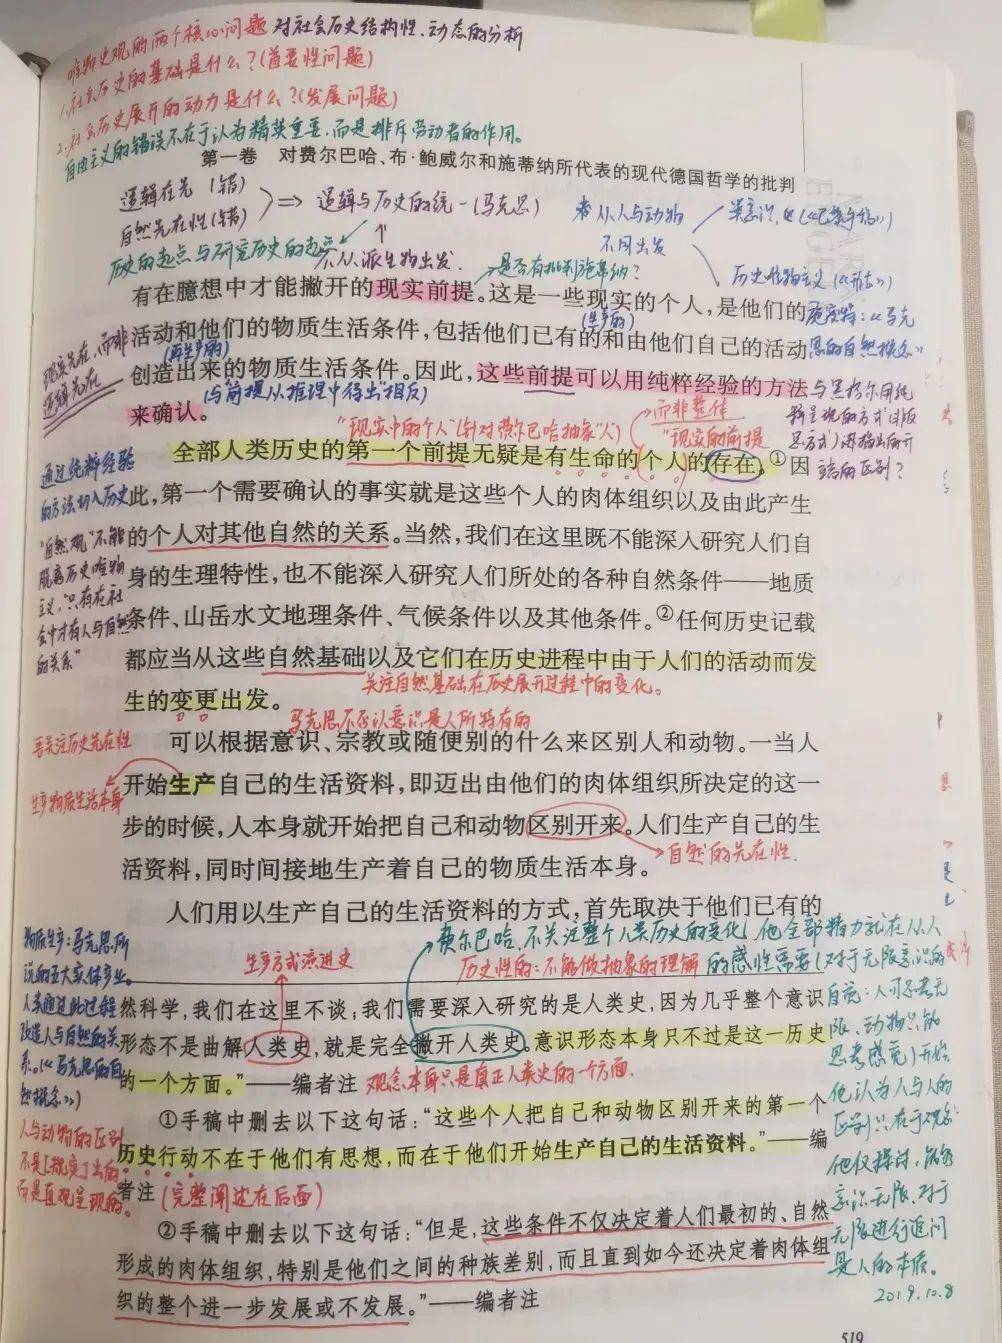 唯物史观的两个核心问题 对社会历史结构性、动态的分析
1.社会历史的基础是什么？(首要性问题)
2.社会历史展开的动力是什么？(发展问题)
自由主义的错误不在于认为精英重要，而是排斥劳动者的作用。
第一卷 对费尔巴哈、布·鲍威尔和施蒂纳所代表的现代德国哲学的批判
逻辑在先(错)
自然先在性(错)
⇒ 逻辑与历史的统一(马克思)
从人与动物
不同出发
历史的起点与研究历史的起点
不从派生物出发.
是否有批判施蒂纳？
历史唯物主义(《形态》)
有在臆想中才能撇开的现实前提。这是一些现实的个人，是他们的
(生产的)
施密特：《马克
思的自然概念》
现实先在，而非
逻辑先在
活动和他们的物质生活条件，包括他们已有的和由他们自己的活动
(再生产的)
创造出来的物质生活条件。因此，这些前提可以用纯粹经验的方法
来确认。
(与前提从推理中得出相反)
与黑格尔用纯
"现实中的个人"(针对费尔巴哈抽象"人")
而非整体
"现实的前提
全部人类历史的第一个前提无疑是有生命的个人的存在。①因
通过纯粹经验
的方法切入历史
此，第一个需要确认的事实就是这些个人的肉体组织以及由此产生
的个人对其他自然的关系。当然，我们在这里既不能深入研究人们自
"自然观"不能
脱离历史唯物
主义，"只有在社
会中才有人与自然
的关系"
身的生理特性，也不能深入研究人们所处的各种自然条件——地质
条件、山岳水文地理条件、气候条件以及其他条件。②任何历史记载
都应当从这些自然基础以及它们在历史进程中由于人们的活动而发
关注自然基础在历史展开过程中的变化。
生的变更出发。
马克思不否认意识是人所特有的
可以根据意识、宗教或随便别的什么来区别人和动物。一当人
要关注历史先在性
生产物质生活本身
开始生产自己的生活资料，即迈出由他们的肉体组织所决定的这一
步的时候，人本身就开始把自己和动物区别开来。人们生产自己的生
自然的先在性.
活资料，同时间接地生产着自己的物质生活本身。
人们用以生产自己的生活资料的方式，首先取决于他们已有的
费尔巴哈，不关注整个人类历史的变化，他全部精力就在从人
的感性需要(对于无限意识的
生产方式演进史
历史性的：不能做抽象的理解
物质生产：马克思所
说的五大实体产业。
人类通过此过程
改造人与自然的关
系。(《马克思的自
然概念》)
然科学，我们在这里不谈；我们需要深入研究的是人类史，因为几乎整个意识
形态不是曲解人类史，就是完全撇开人类史。意识形态本身只不过是这一历史
的一个方面。"——编者注
观念本身只是真正人类史的一个方面.
自觉：人可思考无
限，动物只能
思考感觉)开始.
他认为人与人的
区别只在于观念
①手稿中删去以下这句话："这些个人把自己和动物区别开来的第一个
历史行动不在于他们有思想，而在于他们开始生产自己的生活资料。"——编
者注
(完整阐述在后面)
人与动物的区别
不是[规定]出的
而是直观呈现的。
②手稿中删去以下这句话："但是，这些条件不仅决定着人们最初的、自然
形成的肉体组织，特别是他们之间的种族差别，而且直到如今还决定着肉体组
织的整个进一步发展或不发展。"——编者注
意识无限，对于
无限进行追问
是人的本质。
2019.10.8
519